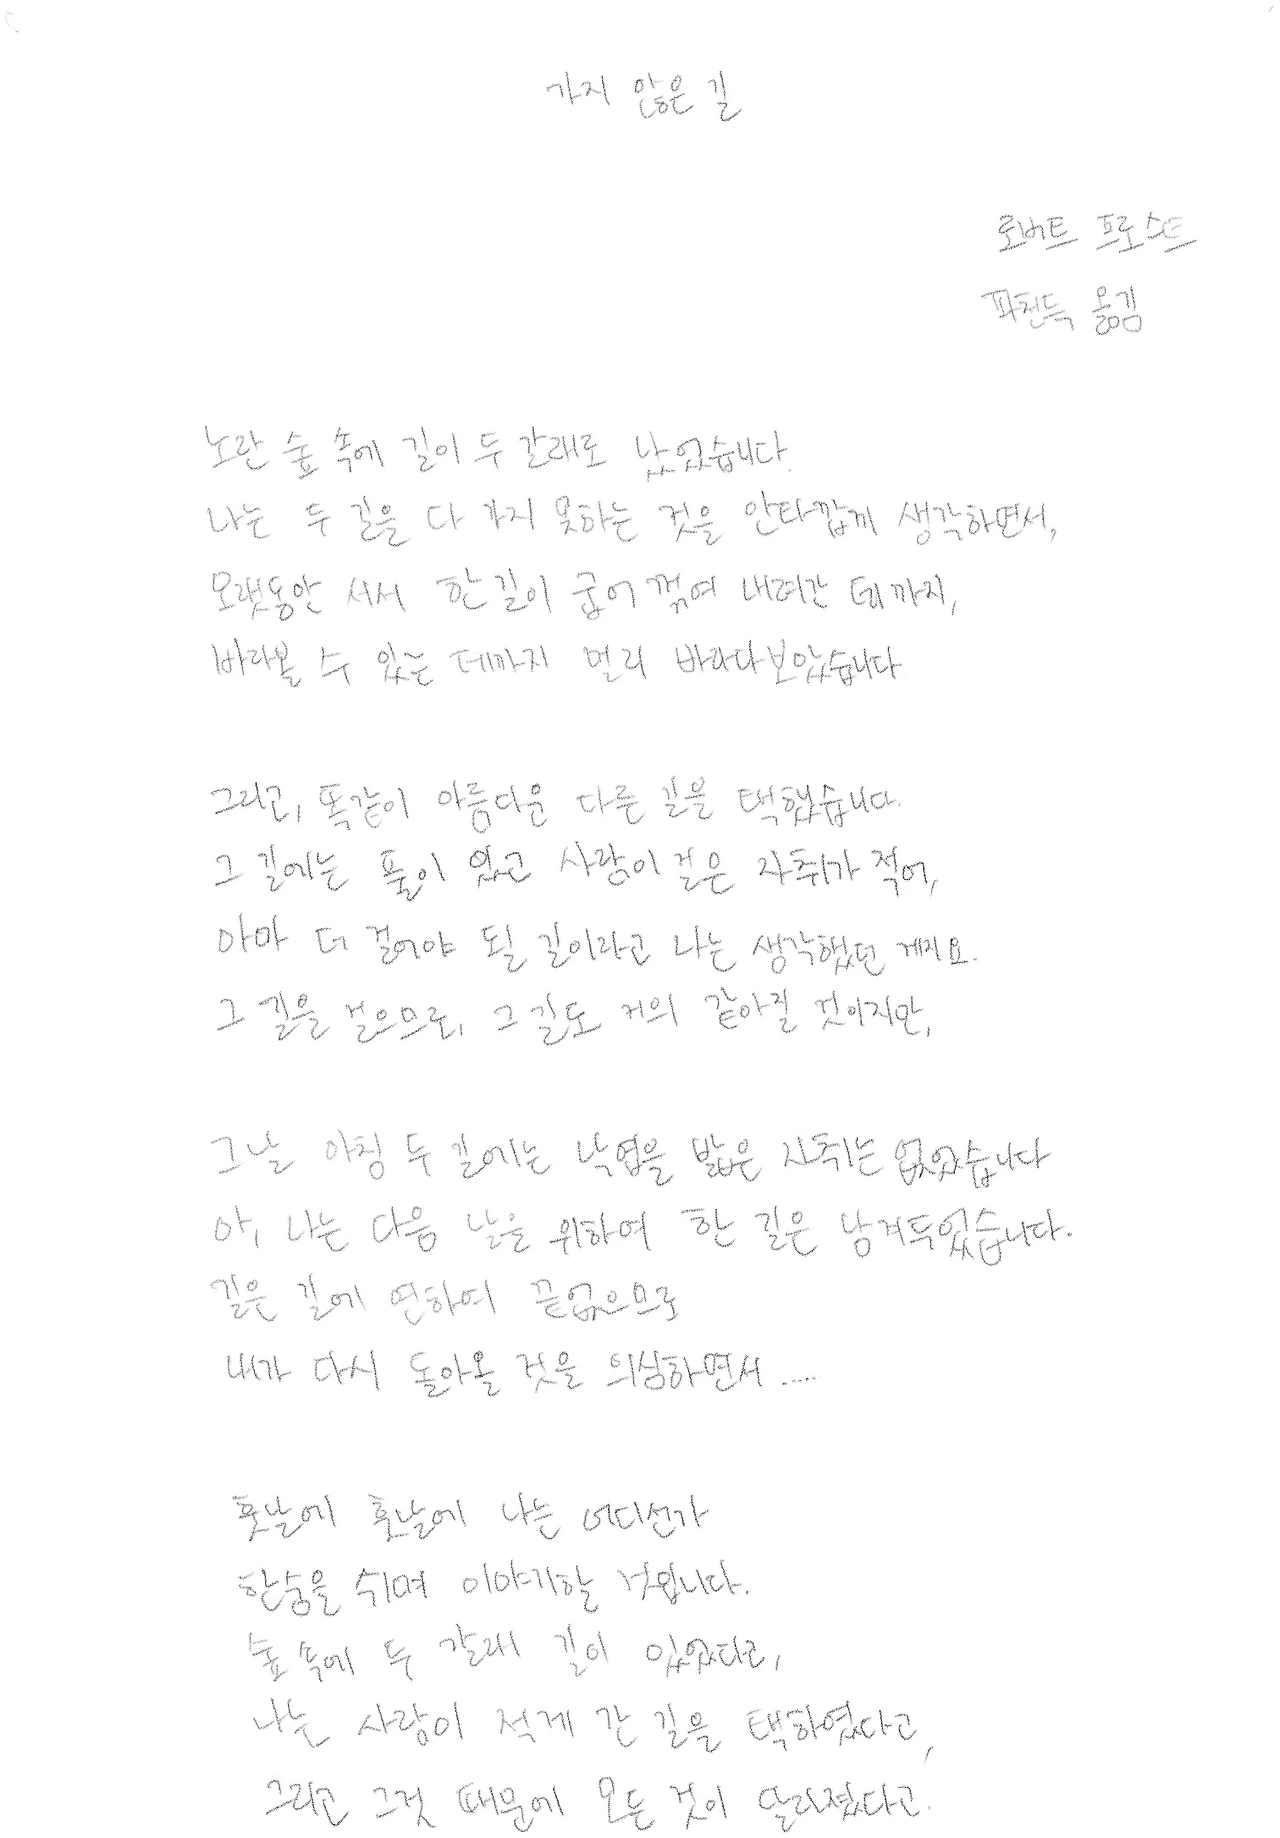 가지 않은 길
로버트 프로스트
피천득 옮김
노란 숲 속에 길이 두 갈래로 났었습니다.
나는 두 길을 다 가지 못하는 것을 안타깝게 생각하면서,
오랫동안 서서 한 길이 굽어 꺾여 내려간 데까지,
바라볼 수 있는 데까지 멀리 바라다보았습니다
그리고, 똑같이 아름다운 다른 길을 택했습니다.
그 길에는 풀이 있고 사람이 걸은 자취가 적어,
아마 더 걸어야 될 길이라고 나는 생각했던 게지요.
그 길을 걸으므로, 그 길도 거의 같아질 것이지만,
그날 아침 두 길에는 낙엽을 밟은 자취는 없었습니다
아, 나는 다음 날을 위하여 한 길은 남겨두었습니다.
길은 길에 연하여 끝없으므로
내가 다시 돌아올 것을 의심하면서 .....
훗날에 훗날에 나는 어디선가
한숨을 쉬며 이야기할 것입니다.
숲 속에 두 갈래 길이 있었다고,
나는 사람이 적게 간 길을 택하였다고,
그리고 그것 때문에 모든 것이 달라졌다고.